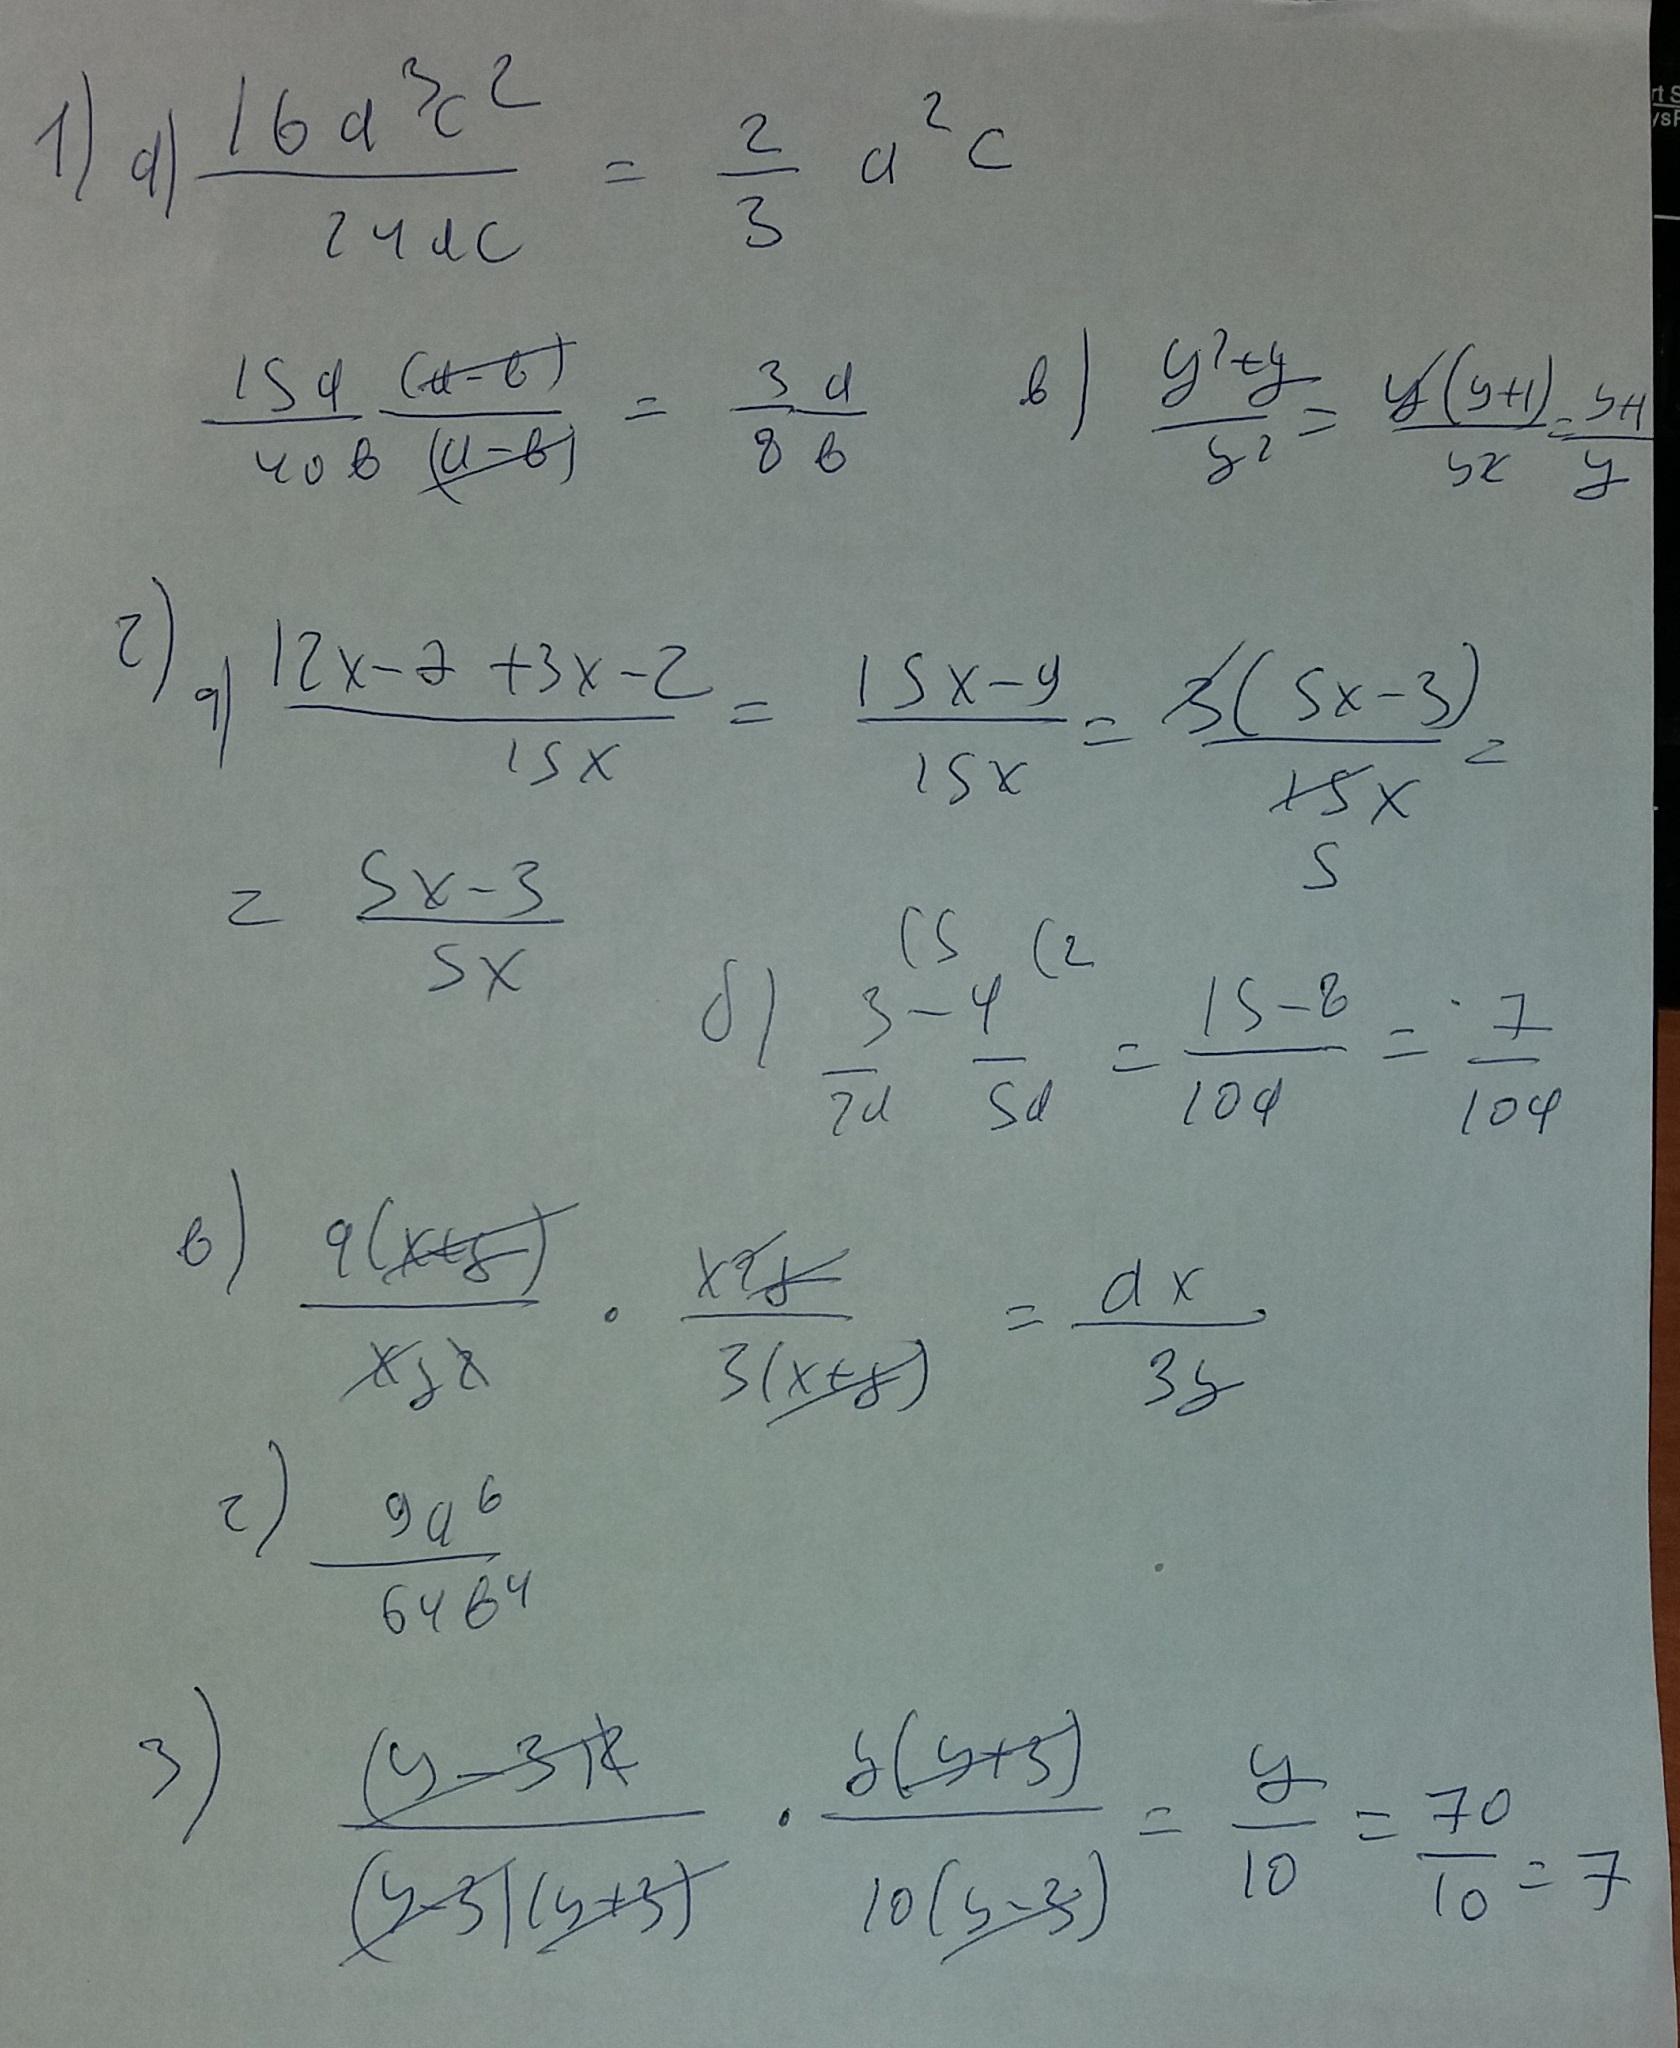 1) а) 16a³c² / 24ac = 2/3 a²c
15a (a-в) / 40в (a-в) = 3a / 8в   в) y²+y / y² = y(y+1) / y² = y+1 / y
2) а) 12x-7+3x-2 / 15x = 15x-9 / 15x = 3(5x-3) / 15x =
5
= 5x-3 / 5x
(5 (2
б) 3/2a - 4/5a = 15-8 / 10a = 7 / 10a
в) a(x+y) / xy² · x²y / 3(x+y) = ax / 3y
г) 9a⁶ / 64в⁴
3) (y-3)² / (y-3)(y+3) · y(y+3) / 10(y-3) = y/10 = 70/10 = 7